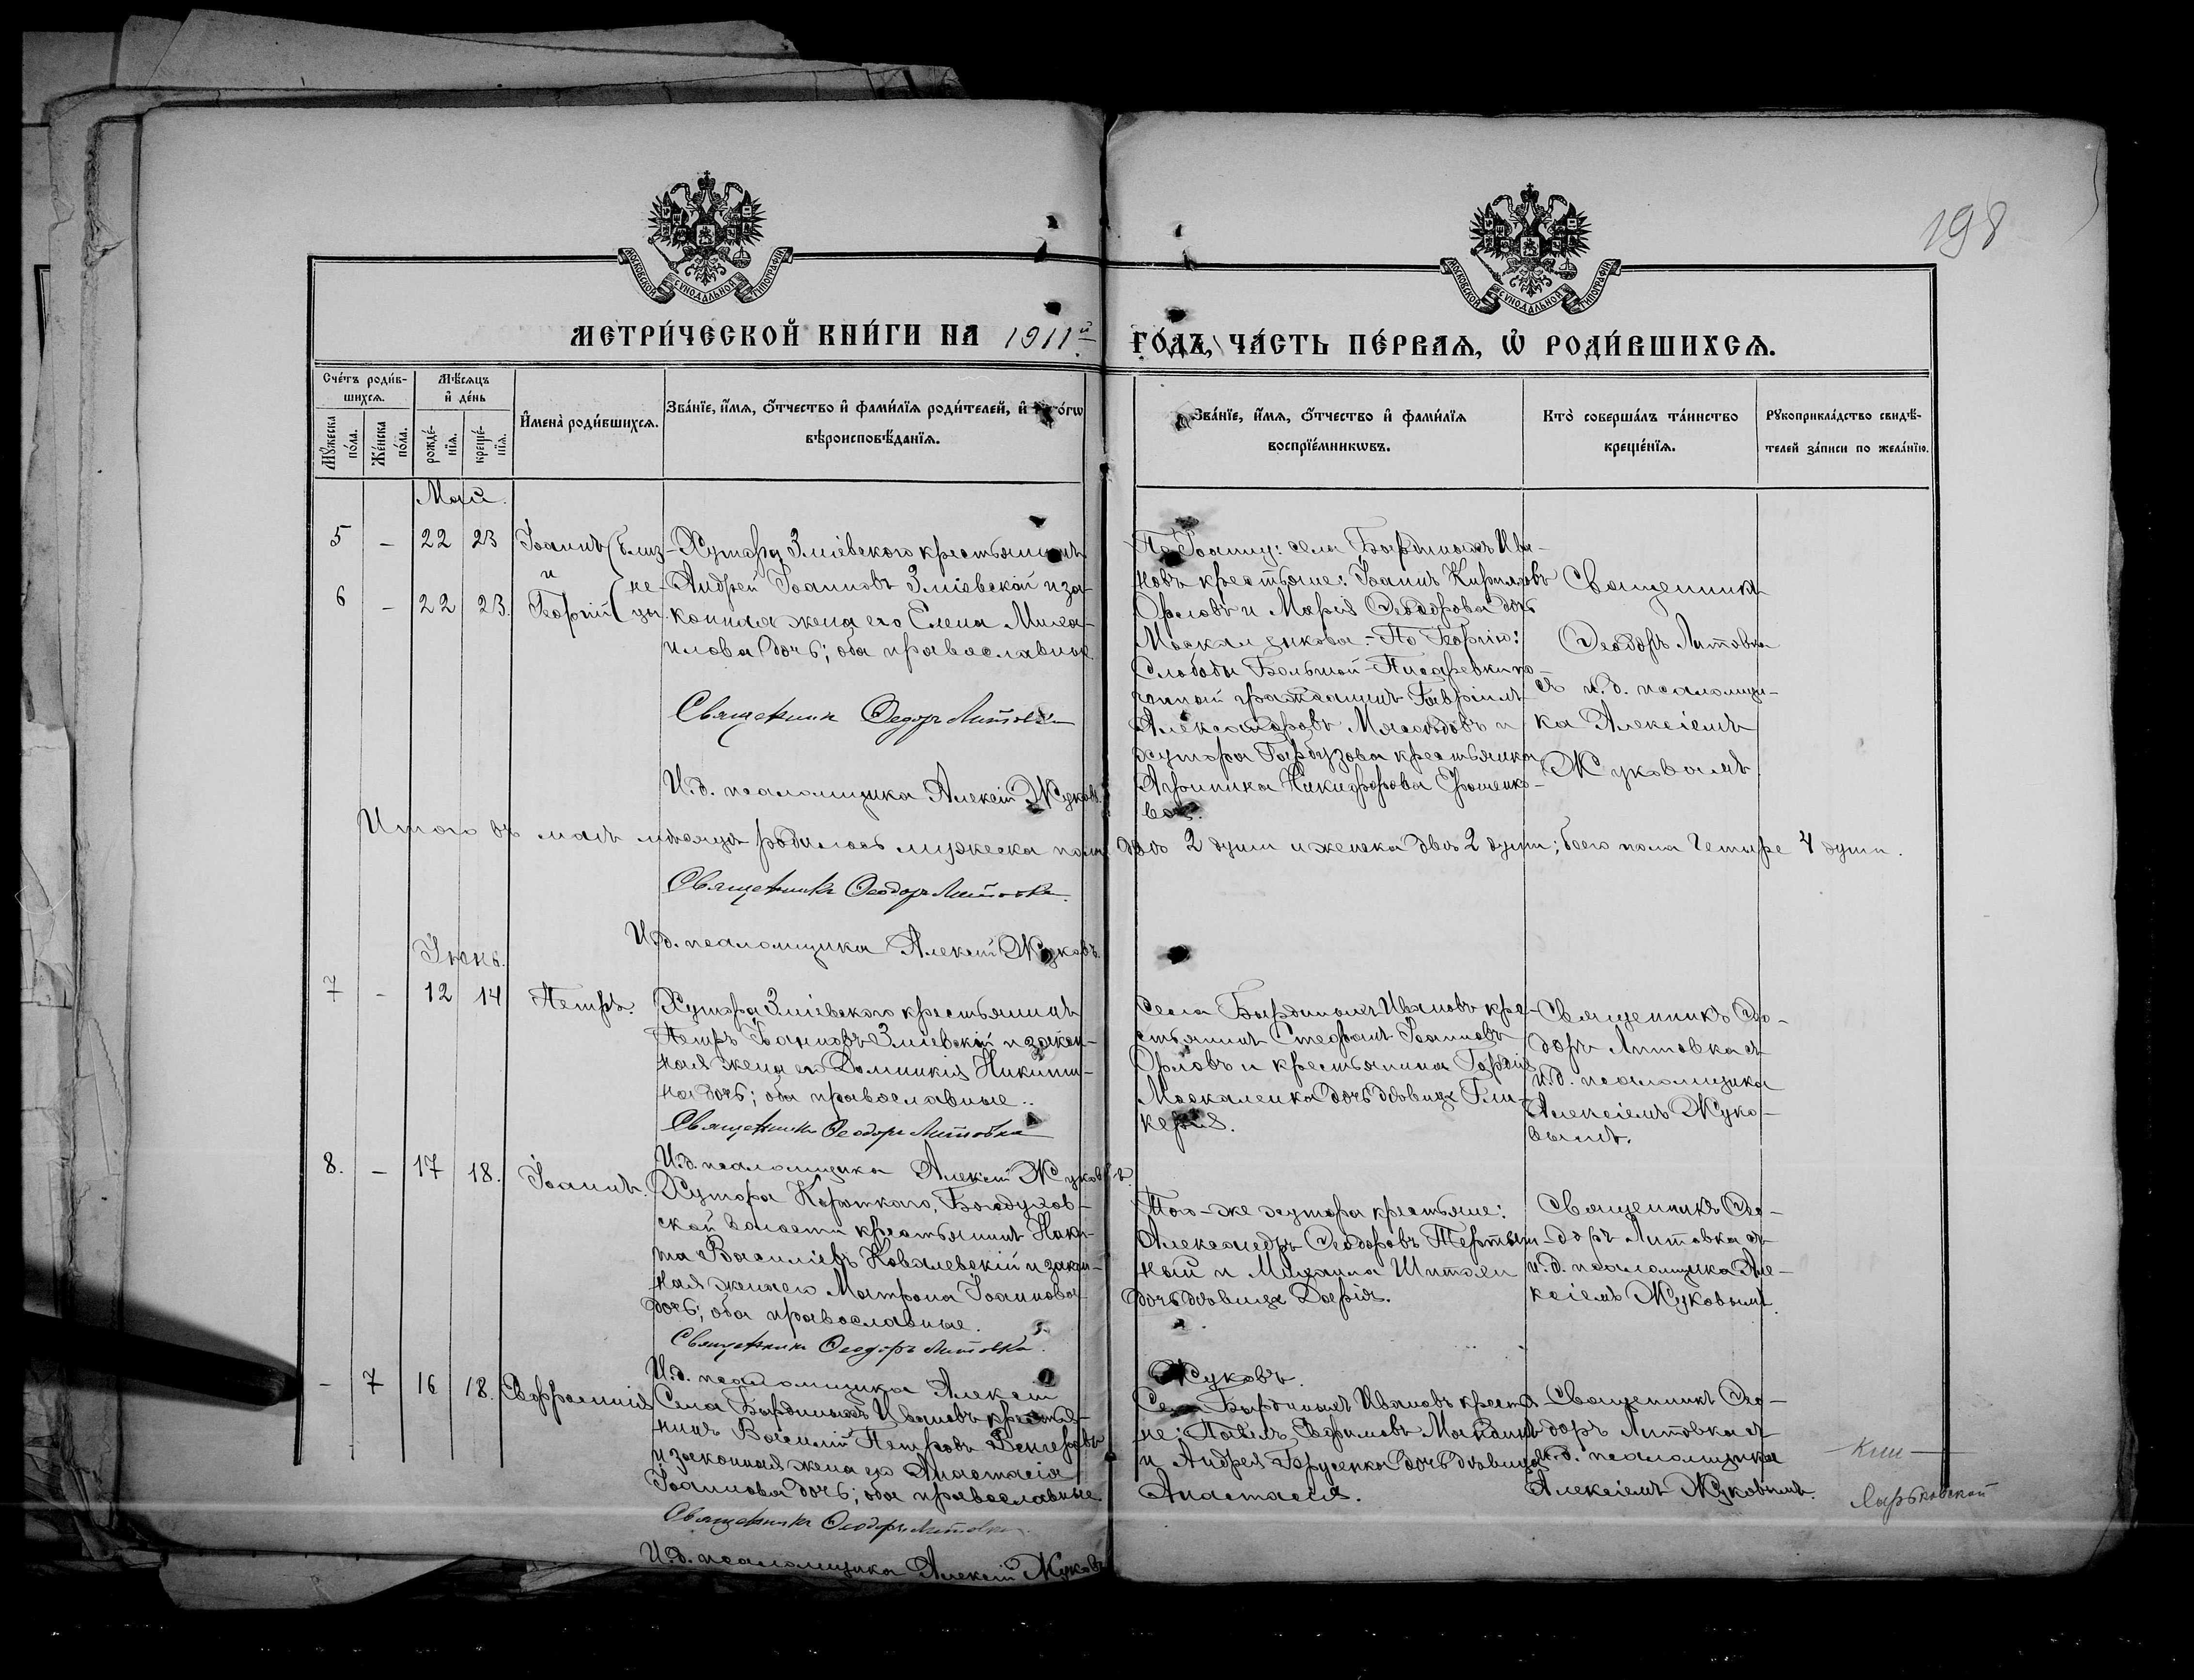 198
МОСКОВСКОЙ СУНОДАЛЬНОЙ ТИПОГРАФІИ
МОСКОВСКОЙ СУНОДАЛЬНОЙ ТИПОГРАФІИ
МЕТРИ́ЧЕСКОЙ КНИ́ГИ НА 1911й ГО́ДЪ, ЧА́СТЬ ПЕ́РВАЯ, Ѡ҆ РОДИ́ВШИХСЯ.
Сче́тъ роди́в-
шихся.
Мꙋ́жеска по́ла.
Же́нска по́ла.
Мѣ́сяцъ
и҆ де́нь
рожде́-
нїя.
креще́-
нїя.
И҆мена̀ роди́вшихся.
Зва́нїе, и҆́мя, ѻ҆́тчество и҆ фами́лїя роди́телей, и҆ кото́рагѡ
вѣроисповѣ́данїя.
Зва́нїе, и҆́мя, ѻ҆́тчество и҆ фами́лїя
воспрїе́мникѡвъ.
Кто̀ соверша́лъ та́инство
креще́нїя.
Рꙋкоприкла́дство свидѣ́-
телей за́писи по жела́нїю.
Май.
5 - 22 23 Іоаннъ (близ-
и
6 - 22 23. Георгій (не-
цы.
Хутора Зміевского крестьянинъ
Андрей Іоанновъ Зміевскій и за-
конная жена его Елена Миха-
илова дочь; оба православные
Священникъ Ѳеодоръ Литовка
И.д. псаломщика Алексій Жуковъ.
По Іоанну: села Бардиныхъ Ива-
новъ крестьяне: Іоаннъ Кириловъ
Орловъ и Марія Ѳеодорова дочь
Москаленкова. - По Георгію:
Слободы Большой-Писаревки по-
четный гражданинъ Гавріилъ
Александровъ Мясоѣдовъ и
хутора Гарбузова крестьянка
Никифорова Ерошенко-
ва.
Священникъ
Ѳеодоръ Литовка
съ и.д. псаломщи-
ка Алексіемъ
Жуковымъ.
Итого въ маѣ мѣсяцѣ родилось мужеска пола двѣ 2 души и женска двѣ 2 души; обоего пола четыре 4 души.
Священникъ Ѳеодоръ Литовка.
И.д. псаломщика Алексій Жуковъ.
Іюнь.
7 - 12 14 Петръ.
Хутора Зміевского крестьянинъ
Петръ Іоанновъ Зміевскій и закон-
ная жена его Домникія Никити-
на дочь; оба православные.
Священникъ Ѳеодоръ Литовка
И.д. псаломщика Алексій Жуковъ.
Села Бардиныхъ Ивановъ кре-
стьянинъ Стефанъ Іоанновъ
Орловъ и крестьянина Гордія
Москаленка дочь дѣвица Гли-
керія.
Священникъ Ѳео-
доръ Литовка съ
и.д. псаломщика
Алексіемъ Жуко-
вымъ.
8. - 17 18. Іоаннъ.
Хутора Короткого, Богодухов-
ской волости крестьянинъ Ники-
та Василіевъ Ковалевскій и закон-
ная жена его Матрона Іоаннова
дочь; оба православные.
Священникъ Ѳеодоръ Литовка.
И.д. псаломщика Алексій
Жуковъ.
Того-же хутора крестьяне:
Александръ Ѳеодоровъ
ный и Михаила
дочь дѣвица Дарія.
Священникъ Ѳео-
доръ Литовка съ
и.д. псаломщика Але-
ксіемъ Жуковымъ.
- 7 16 18. Евфросинія
Села Бардиныхъ Ивановъ крестья-
нинъ Василій Петровъ Венгеровъ
и законная жена его Анастасія
Іоаннова дочь; оба православные.
Священникъ Ѳеодоръ Литовка.
И.д. псаломщика Алексій Жуковъ
Села Бардиныхъ Ивановъ крестья-
не: Павелъ Евфимовъ
и Андрея дочь дѣвица
Анастасія.
Священникъ Ѳео-
доръ Литовка съ
и.д. псаломщика
Алексіемъ Жуковымъ.
Харьковской